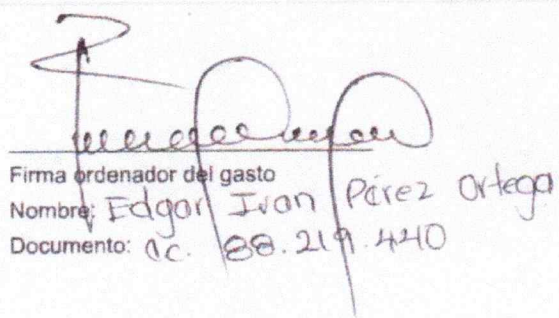 Firma ordenador del gasto
Nombre: Edgar Ivan Pérez Ortega
Documento: cc. 88.219.440